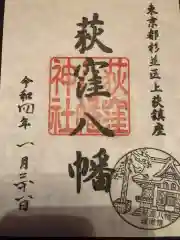 東京都杉並区上荻鎮座
荻窪八幡
荻窪
神社
令和四年一月二十八日